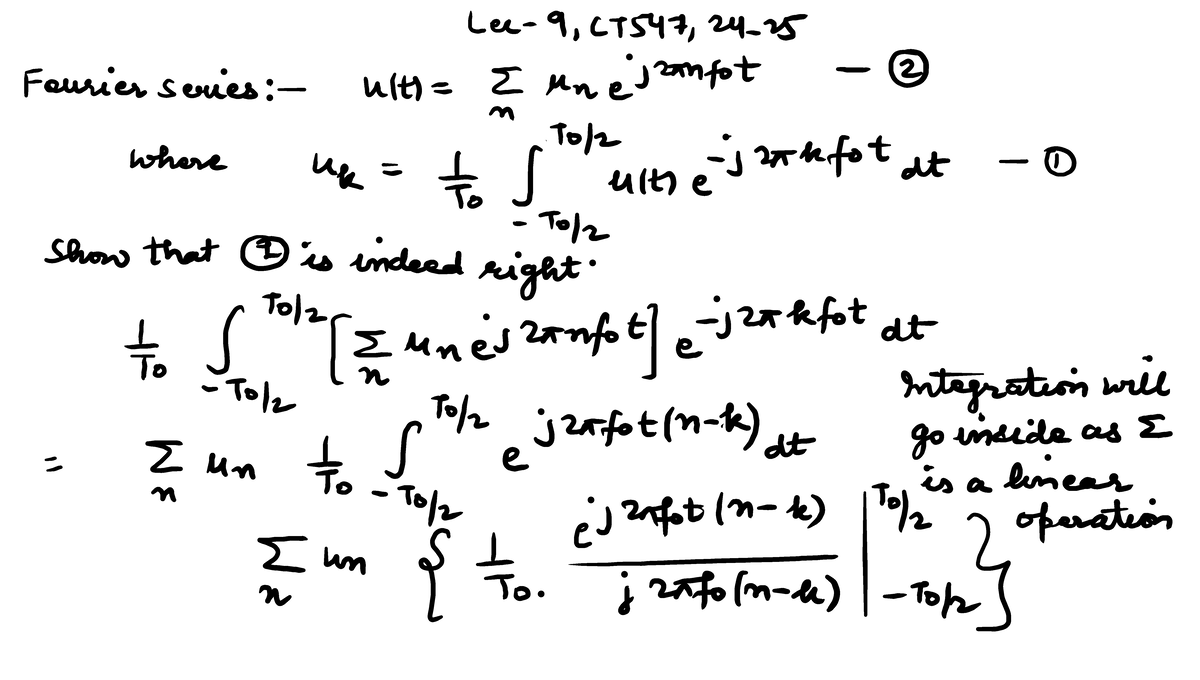 Lec-9, CT547, 24-25
Fourier series:- u(t) = Σ_n u_n e^{j2πnf₀t} — ②
where u_k = 1/T₀ ∫_{-T₀/2}^{T₀/2} u(t) e^{-j2πkf₀t} dt — ①
Show that ① is indeed right.
1/T₀ ∫_{-T₀/2}^{T₀/2} [Σ_n u_n e^{j2πnf₀t}] e^{-j2πkf₀t} dt
= Σ_n u_n 1/T₀ ∫_{-T₀/2}^{T₀/2} e^{j2πf₀t(n-k)} dt
Integration will
go inside as Σ
is a linear
operation
Σ_n u_n { 1/T₀ . e^{j2πf₀t(n-k)} / j2πf₀(n-k) |_{-T₀/2}^{T₀/2} }